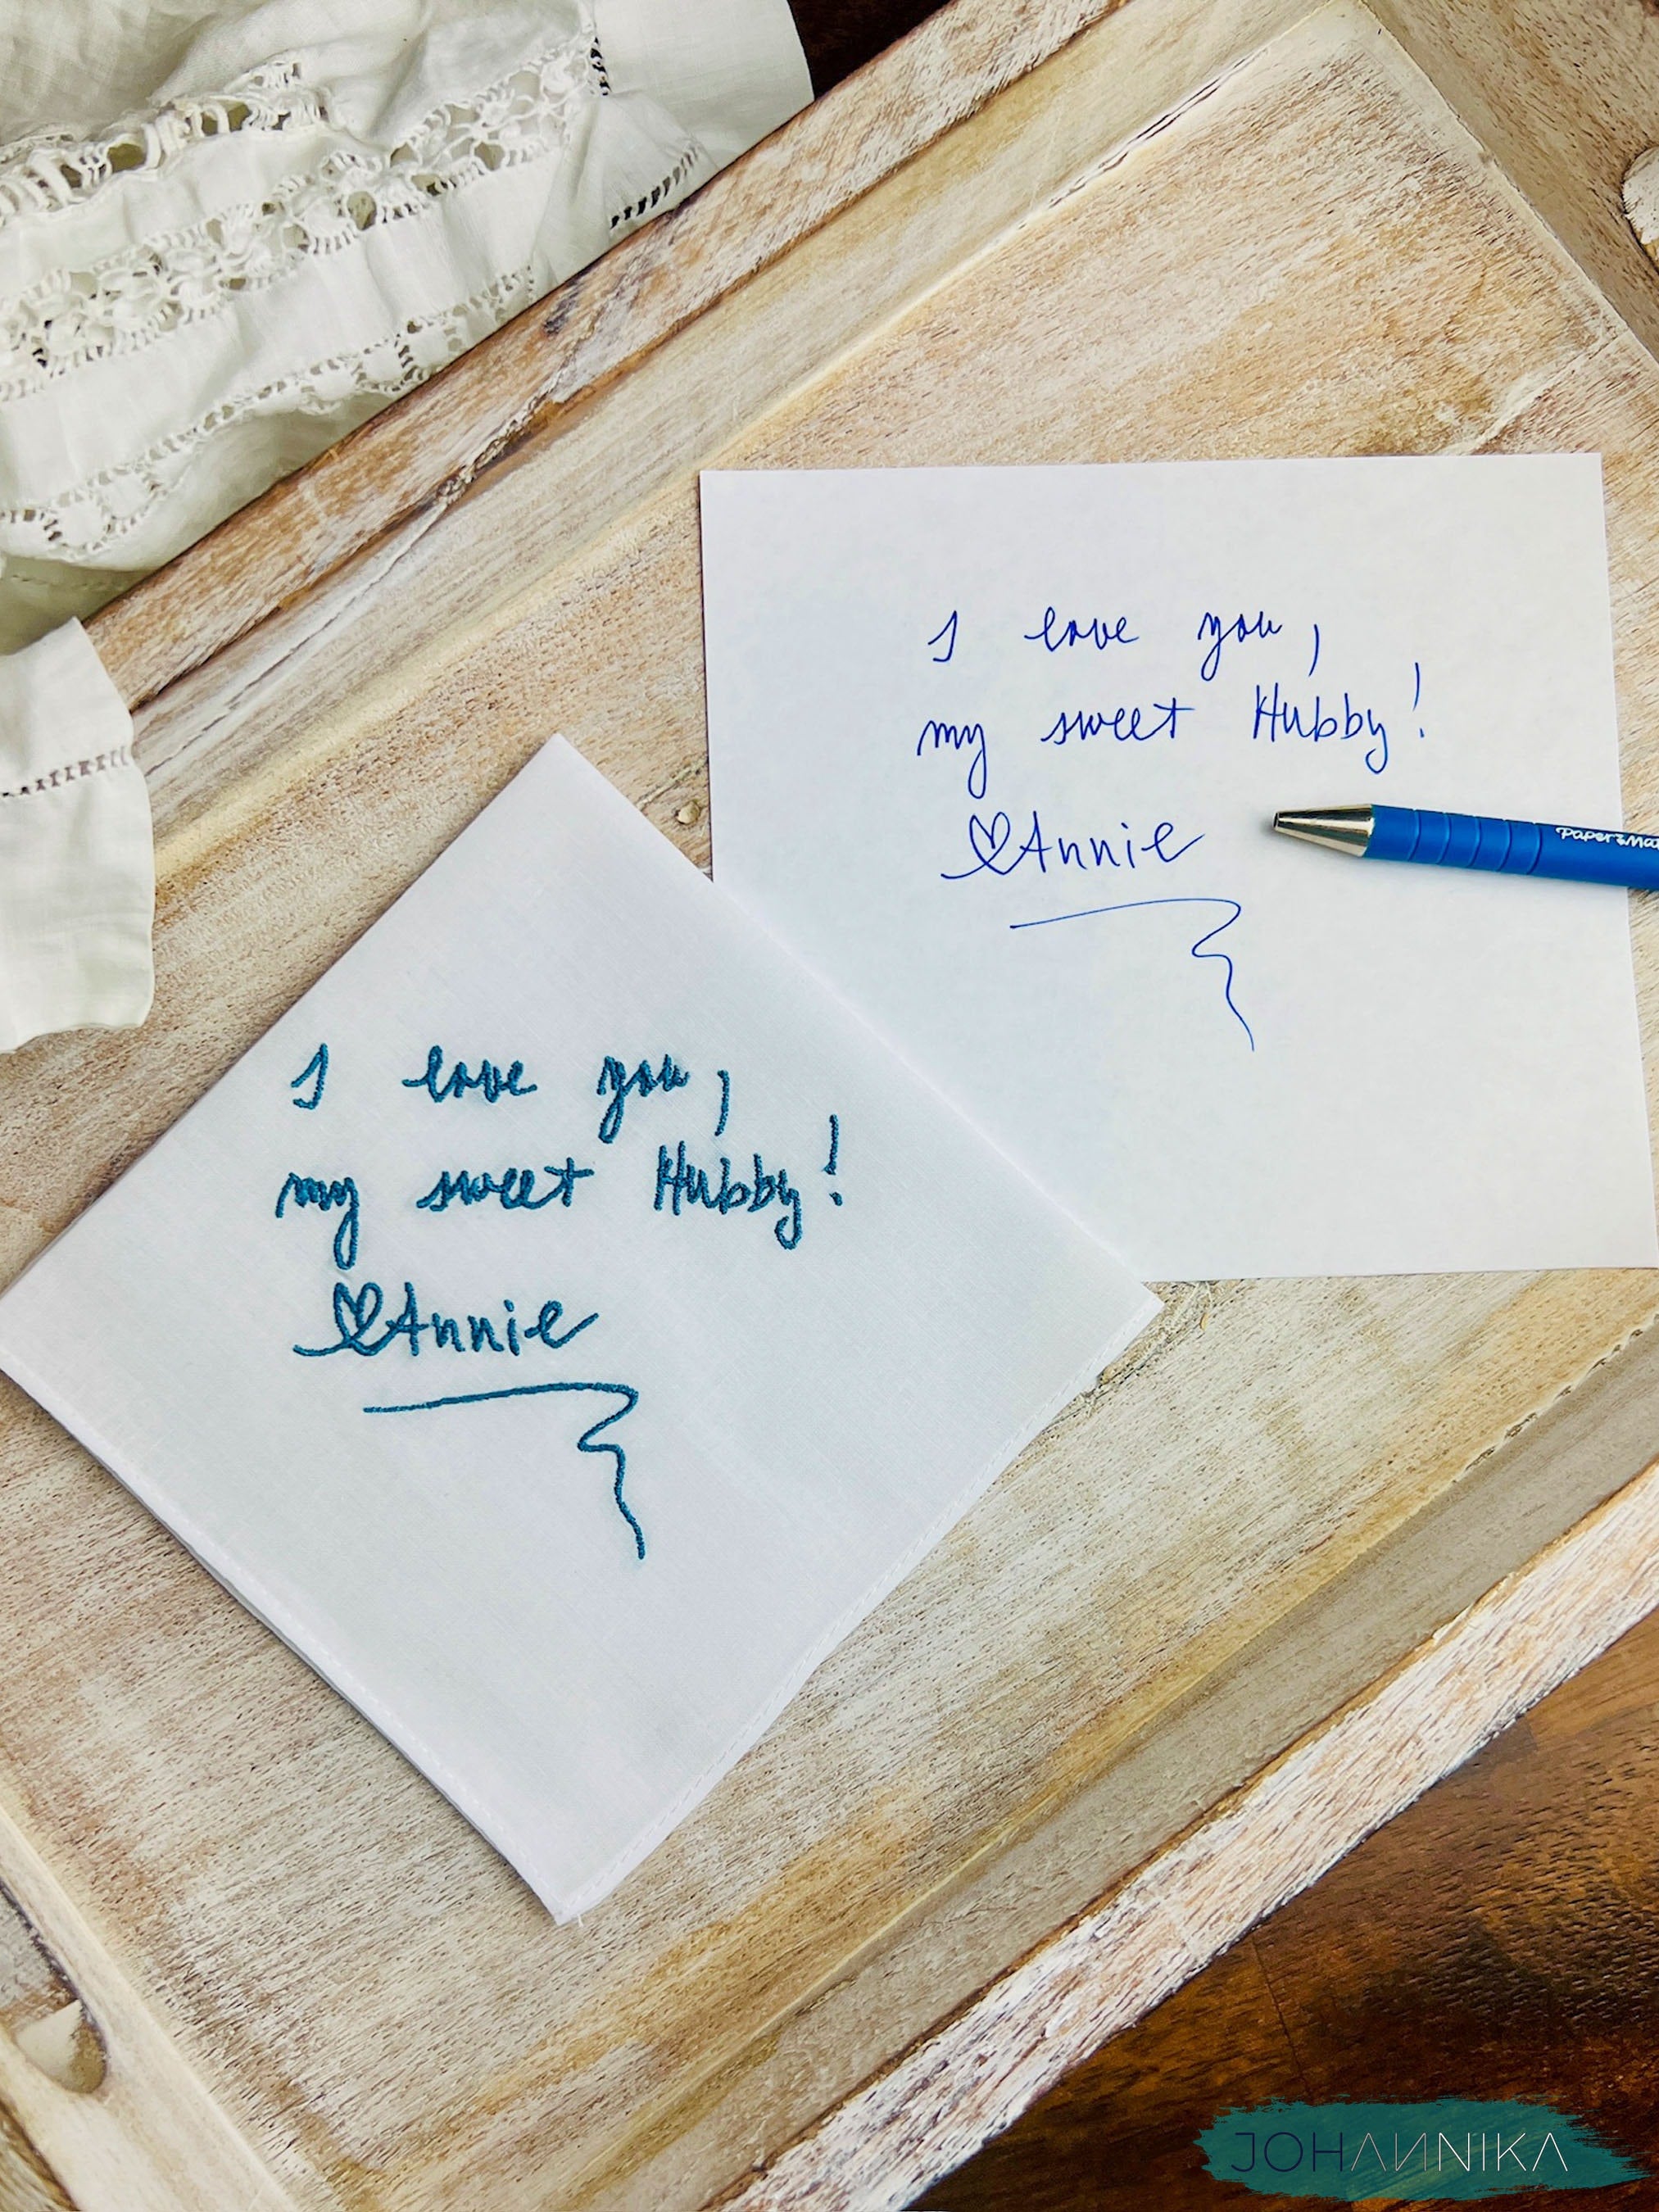 I love you,
my sweet Hubby!
♡Annie
PaperMat
I love you,
my sweet Hubby!
♡Annie
JOHANNIKA